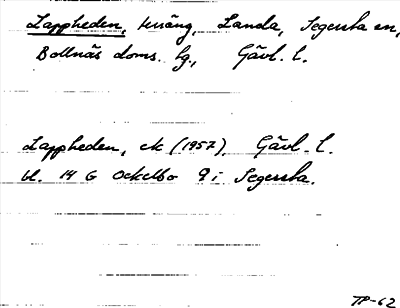 Lappheden, utäng, Landa, Segersta sn,
Bollnäs doms. hg., Gävl. l.
Lappheden, ek (1957), Gävl. l.
bl. 14 G Ockelbo 9 i Segersta.
TP-62